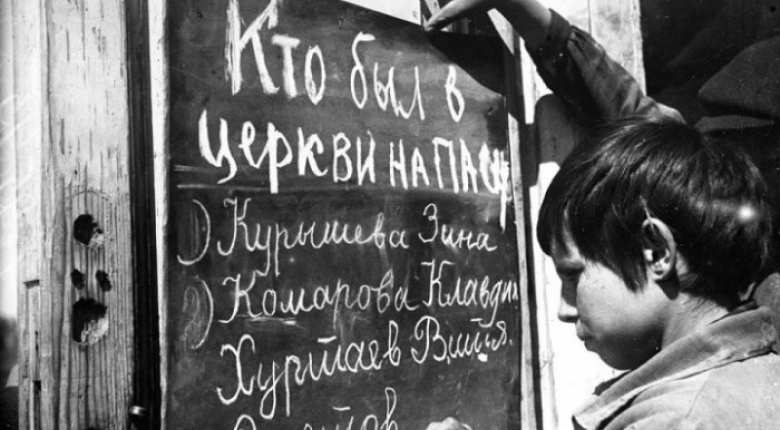 Кто был в
церкви на Пасху
1) Курышева Зина
2) Комарова Клавдия
Хуртаев